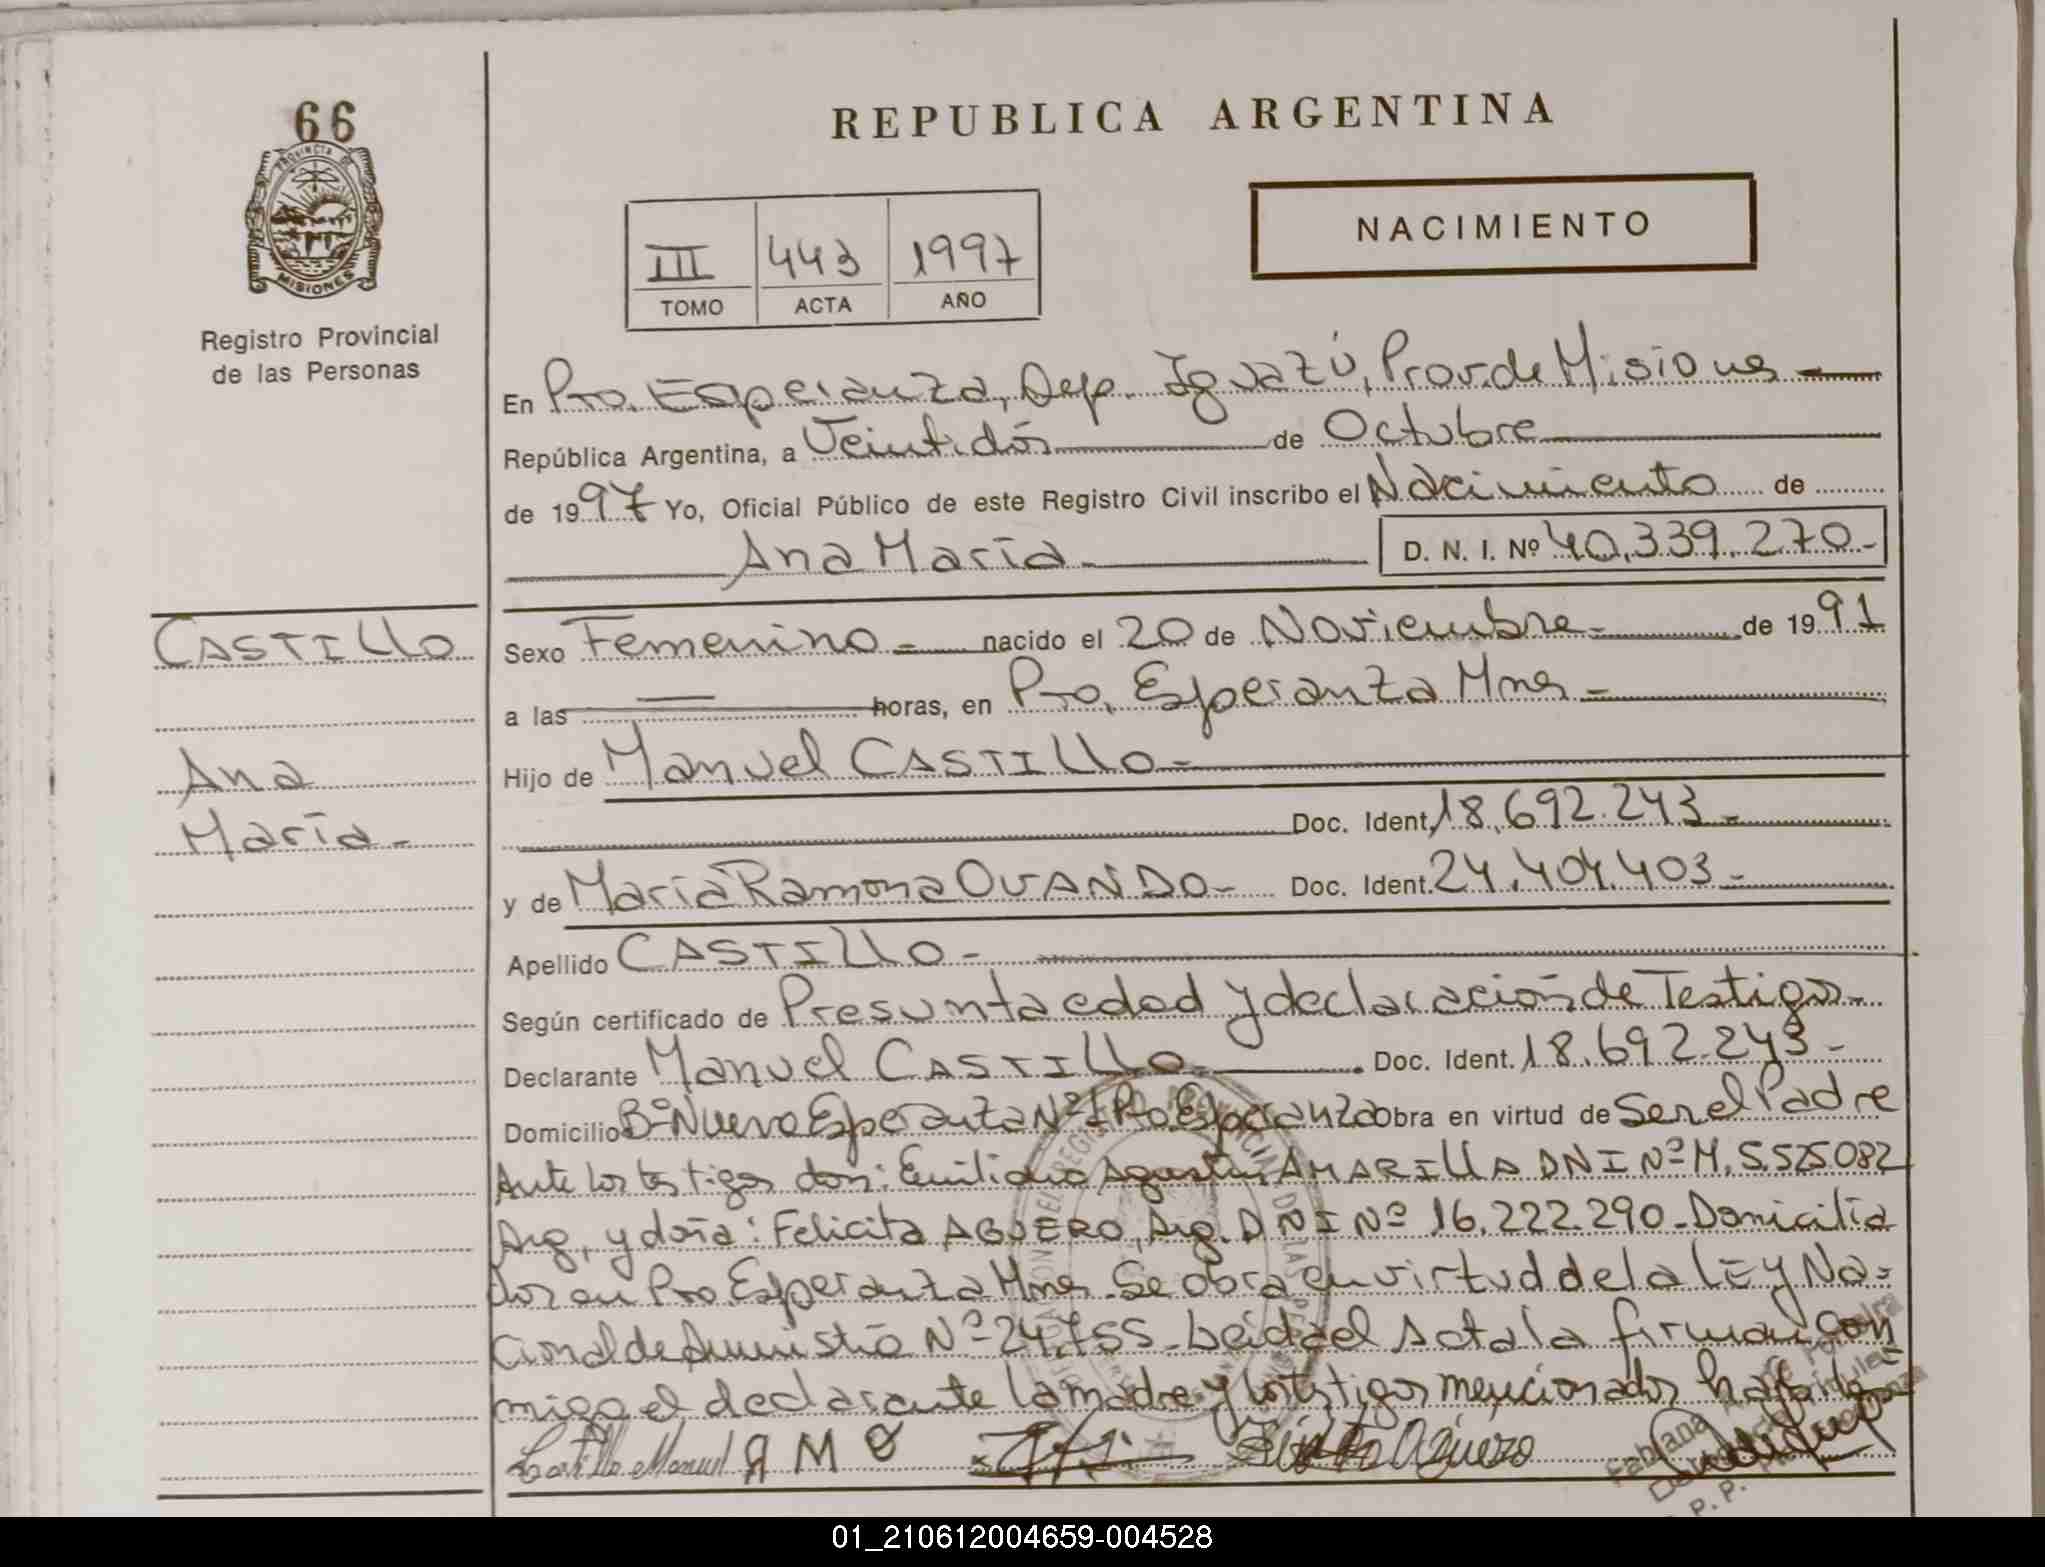 66
PROVINCIA DE
MISIONES
Registro Provincial
de las Personas
REPUBLICA ARGENTINA
NACIMIENTO
III 443 1997
TOMO ACTA AÑO
En Pto. Esperanza, Dep. Iguazú, Prov. de Misiones
República Argentina, a Veintidós de Octubre
de 1997 Yo, Oficial Público de este Registro Civil inscribo el Nacimiento de
Ana María D. N. I. Nº 40.339.270-
CASTILLO
Ana
María-
Sexo Femenino- nacido el 20 de Noviembre- de 1991
a las horas, en Pto. Esperanza Mnes-
Hijo de Manuel CASTILLO-
Doc. Ident. 18.692.243-
y de María Ramona OVANDO- Doc. Ident. 24.404.403-
Apellido CASTILLO-
Según certificado de Presunta edad y declaración de Testigos-
Declarante Manuel CASTILLO. Doc. Ident. 18.692.243-
Domicilio Bº Nueva Esperanza Nº 1 Pto. Esperanza obra en virtud de Ser el Padre
Ante los testigos don: Emiliano Agustín AMARILLA DNI Nº M. 5.525.082
Arg, y doña: Felicita AGUERO, Arg. DNI Nº 16.222.290-Domicilia
dos en Pto. Esperanza Mnes. Se obra en virtud de la LEy Na=
cional de Amnistía Nº 24.755-Leida el Acta la firman con
migo el declarante la madre y los testigos mencionados
Castillo Manuel R M O Agüero
Fabiana
01_210612004659-004528